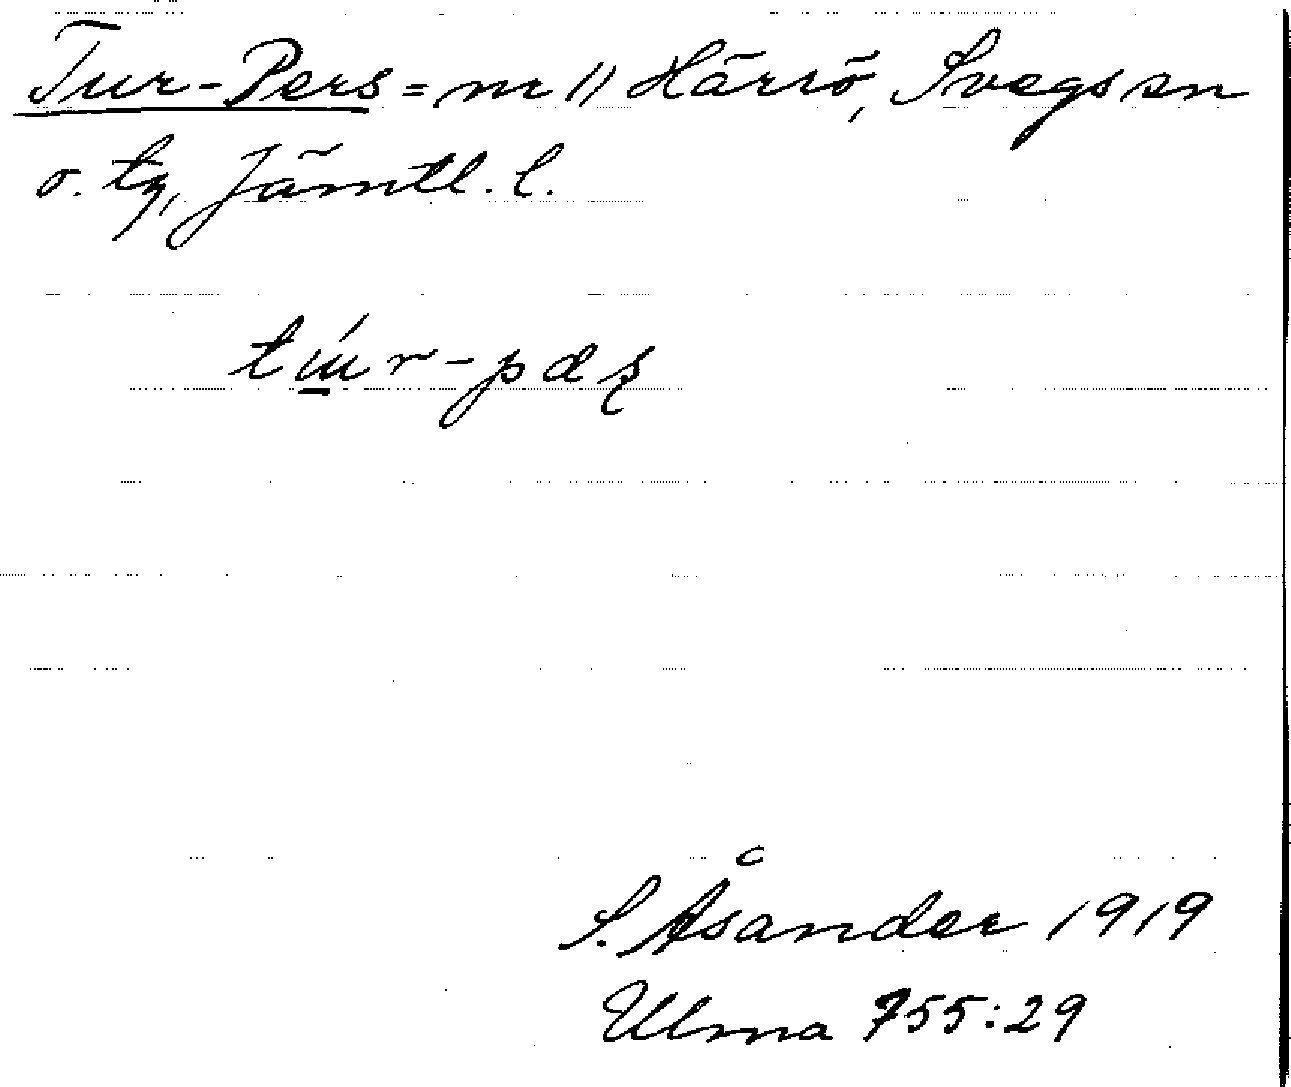 Tur-Pers = nr 11 Härrö, Svegs sn
o. tg, Jämtl. l.
S. Åsander 1919
Ulma 755:29